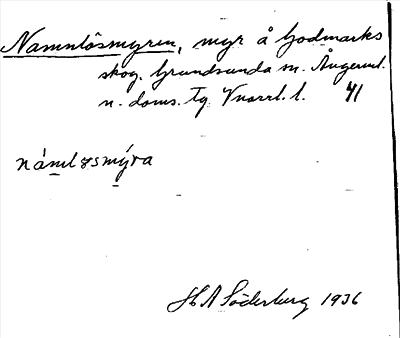 Namnlösmyren, myr å Godmarks
skog. Grundsunda sn. Ångerml.
n. doms. Tg Vnorrl. l. 41
námløsmýra
H A Söderberg 1936